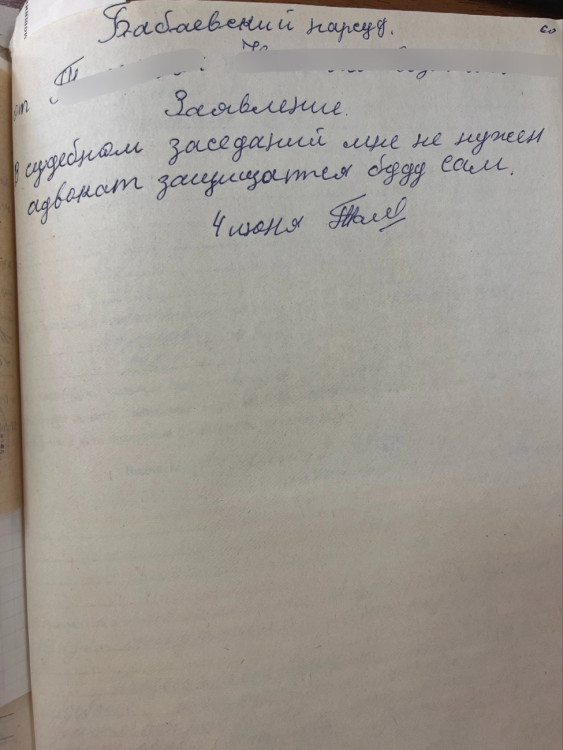 60
Бабаевский нарсуд.
от
Заявление.
В судебном заседаний мне не нужен
адвокат защищатся буду сам.
4 июня